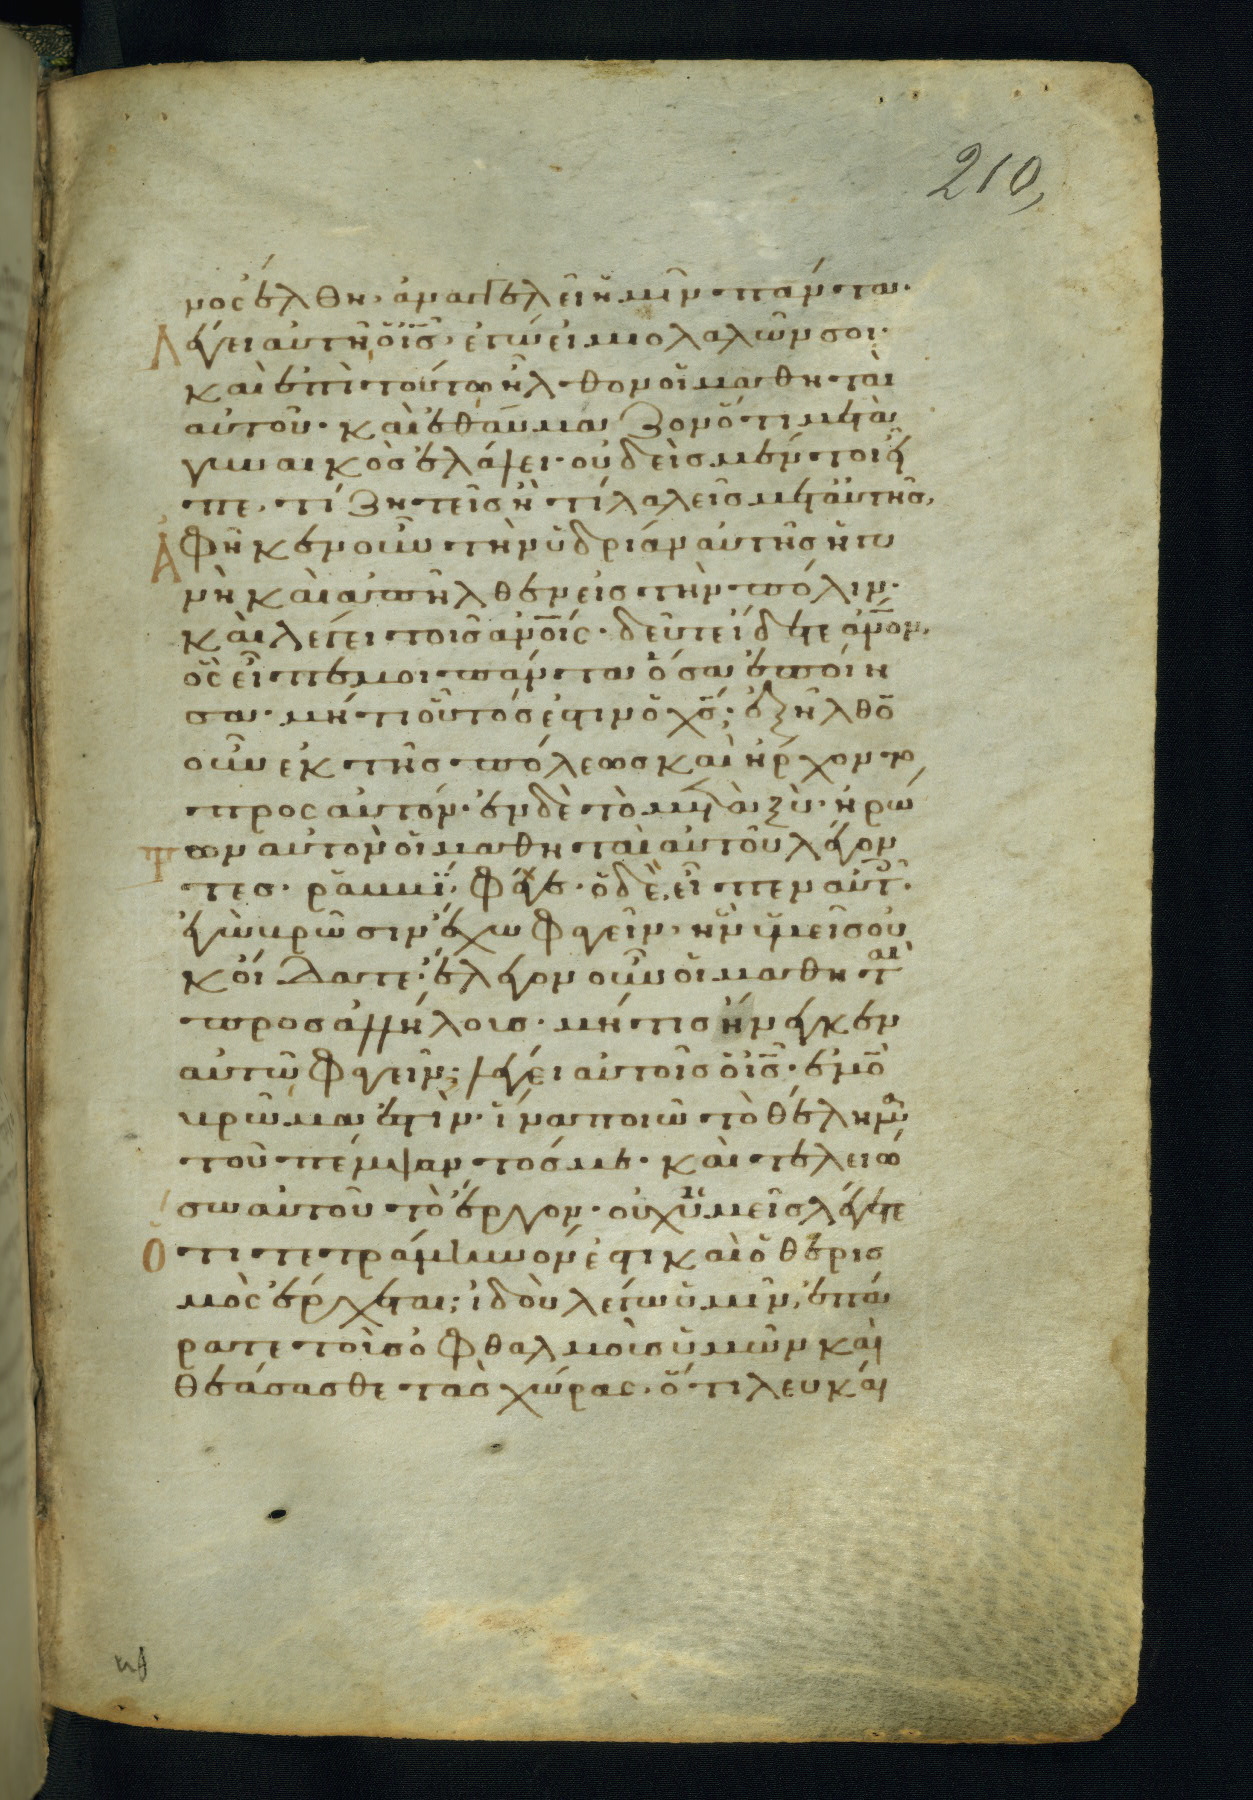 210
νος ἔλθη, ἀναγγελεῖ ἡμῖν πάντα.
Λέγει αὐτῆ ὁ ἰς, ἐγώ εἰμι ὁ λαλῶν σοι.
καὶ ἐπὶ τούτω ἦλθον οἱ μαθηταὶ
αὐτοῦ. καὶ ἐθαύμαζον ὅτι μετὰ
γυναικὸς ἐλάλει. οὐδεὶς μέντοι εἶ
πε, τί ζητεῖς ἢ τί λαλεῖς μετ' αὐτῆς,
Ἀφῆκεν οὖν τὴν ὑδρίαν αὐτῆς ἡ γυ
νὴ καὶ ἀπῆλθεν εἰς τὴν πόλιν.
καὶ λέγει τοῖς ἀνοις. δεῦτε ἴδετε ἀνον,
ὃς εἶπέ μοι πάντα ὅσα ἐποίη
σα. μήτι οὗτός ἐστιν ὁ χς; ἐξῆλθο
οὖν ἐκ τῆς πόλεως καὶ ἤρχοντο
προς αὐτόν. ἐν δὲ τὸ μεταξὺ. ἠρώ
Των αὐτὸν οἱ μαθηταὶ αὐτοῦ λέγον
τες. ῥαββί, φάγε. ὁ δὲ, εἶπεν αὐτ.
ἐγὼ βρῶσιν ἔχω φαγεῖν, ἣν ὑμεῖς οὐ
κ οἴδατε. ἔλεγον οὖν οἱ μαθηταὶ
πρὸς ἀλλήλους. μήτις ἤνεγκεν
αὐτῶ φαγεῖν; λέγει αὐτοῖς ὁ ἰς. ἐμὸ
βρῶμα ἐστὶν. ἵνα ποιῶ τὸ θέλημα
τοῦ πέμψαντός με. καὶ τελειώ
σω αὐτοῦ τὸ ἔργον. οὐχ ὑμεῖς λέγετε
Ὅτι τετράμηνόν ἐστι καὶ ὁ θερισ
μὸς ἔρχεται; ἰδοὺ λέγω ὑμῖν, ἐπά
ρατε τοὺς ὀφθαλμοὺς ὑμῶν καὶ
θεάσασθε τὰς χώρας. ὅτι λευκάι